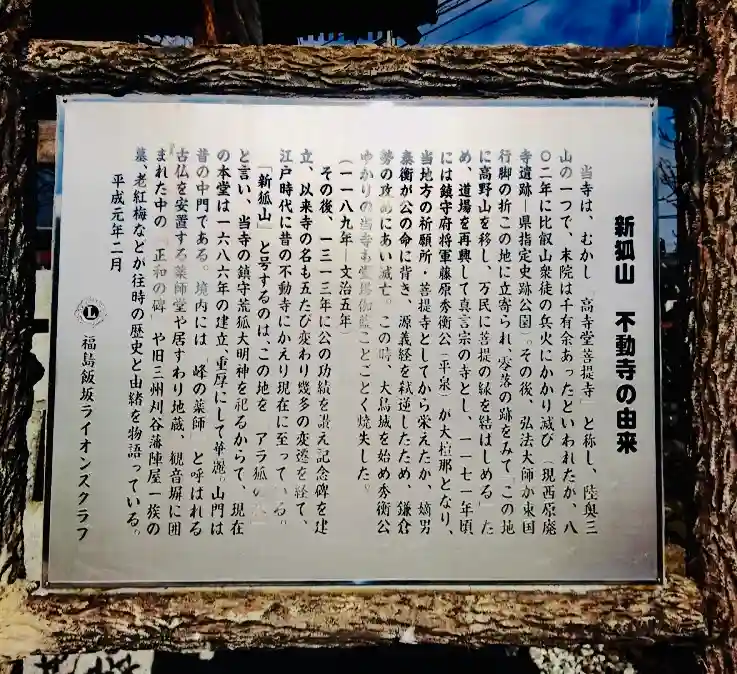 新狐山　不動寺の由来
当寺は、むかし「高寺堂菩提寺」と称し、陸奥三
山の一つで、末院は千有余あったといわれたが、八
〇二年に比叡山衆徒の兵火にかかり滅び（現西原廃
寺遺跡―県指定史跡公園）。その後、弘法大師が東国
行脚の折この地に立寄られ、零落の跡をみて「この地
に高野山を移し、万民に菩提の縁を結ばしめる」た
め、道場を再興して真言宗の寺とし、一一七一年頃
には鎮守府将軍藤原秀衡公（平泉）が大檀那となり、
当地方の祈願所・菩提寺としてから栄えたが、嫡男
泰衡が公の命に背き、源義経を弑逆したため、鎌倉
勢の攻めにあい滅亡。この時、大鳥城を始め秀衡公
ゆかりの当寺も霊場伽藍ことごとく焼失した。
（一一八九年―文治五年）
その後、一三一三年に公の功績を讃え記念碑を建
立、以来寺の名も五たび変わり幾多の変遷を経て、
江戸時代に昔の不動寺にかえり現在に至っている。
「新狐山」と号するのは、この地を「アラ狐の
と言い、当寺の鎮守荒狐大明神を祀るからで、現在
の本堂は一六八六年の建立、重厚にして華麗。山門は
昔の中門である。境内には「峰の薬師」と呼ばれる
古仏を安置する薬師堂や居すわり地蔵、観音塀に囲
まれた中の「正和の碑」や旧三州刈谷藩陣屋一族の
墓、老紅梅などが往時の歴史と由緒を物語っている。
平成元年二月
L 福島飯坂ライオンズクラブ